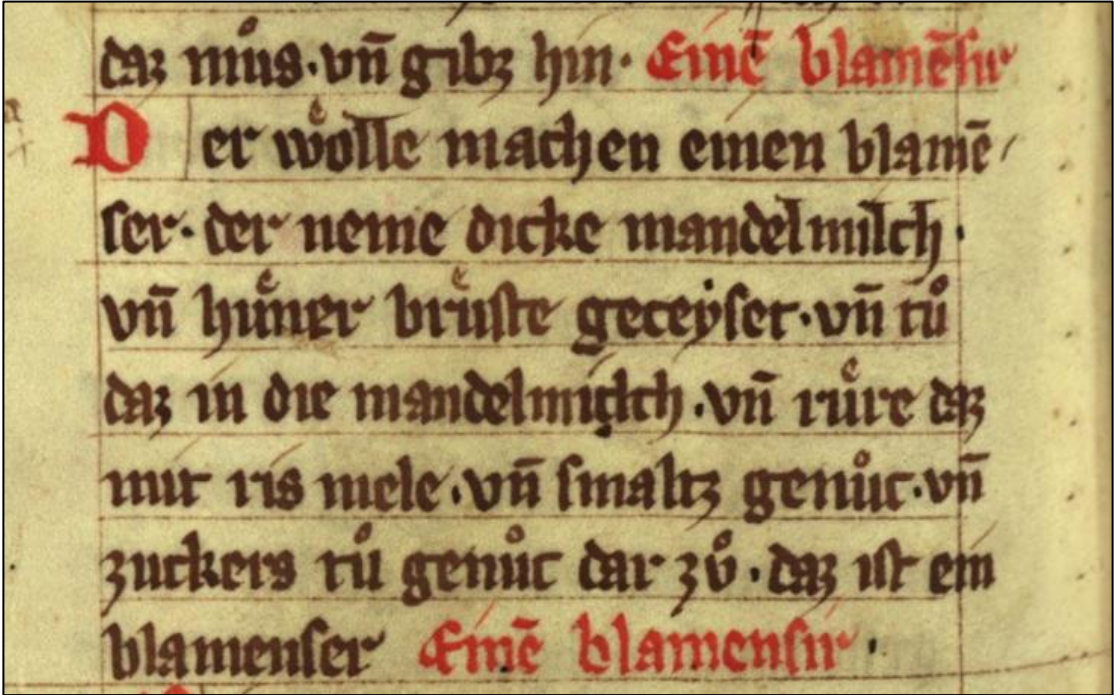 daz muͦs · vn̄ gibz hin · Einē blamēsir
Der woͤlle machen einen blamē/
ser · der neme dicke mandelmilch ·
vn̄ huͤner bruͤste geceyset · vn̄ tuͦ
daz in die mandelmilch · vn̄ ruͤre daz
mit ris mele · vn̄ smaltz genuͦc · vn̄
zuckers tuͦ genuͦc dar zvͦ · daz ist ein
blamenser Einē blamensir ·